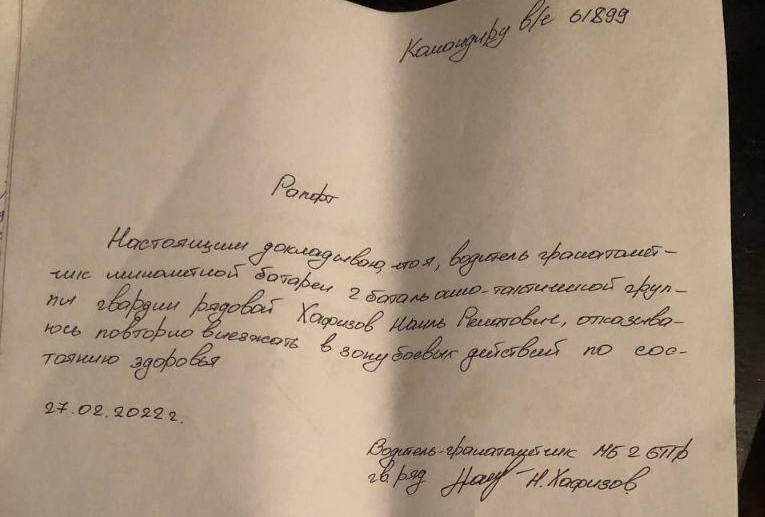 Командиру в/ч 61899
Рапорт
Настоящим докладываю, что я, водитель гранатомет-
чик минометной батареи 2 батальонно-тактической груп-
пы гвардии рядовой Хафизов Наиль Ренатович, отказыва-
юсь повторно выезжать в зону боевых действий по сос-
тоянию здоровья
27.02.2022 г.
Водитель-гранатометчик МБ 2 БТГр
гв. ряд Н. Хафизов